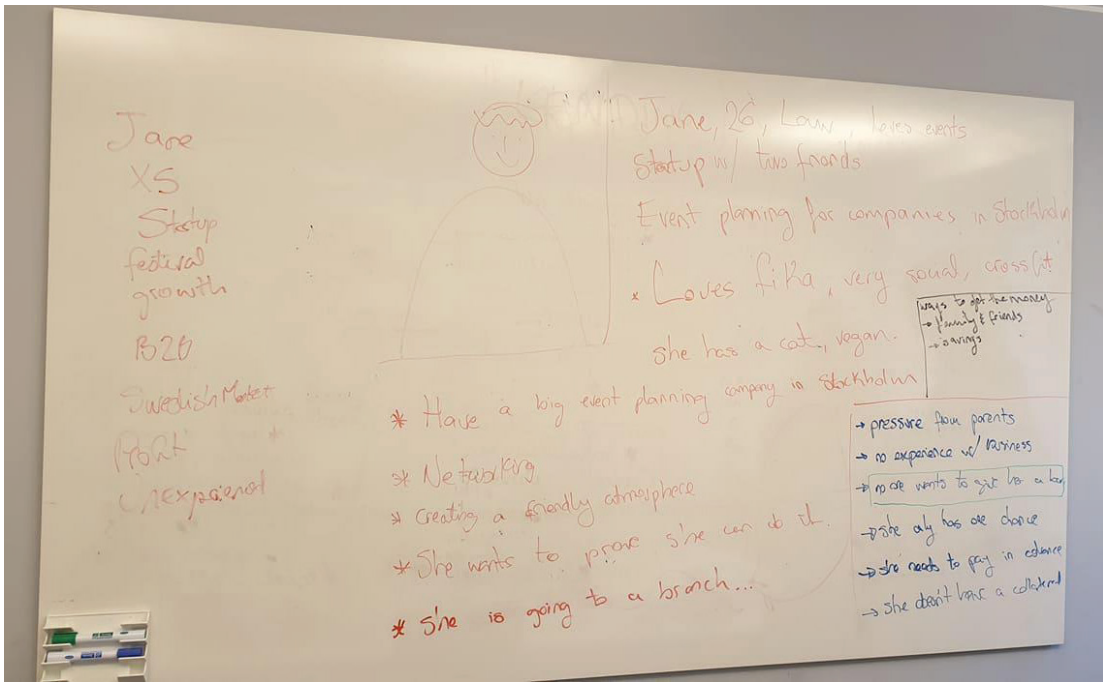 Jane
XS
Startup
festival
growth
B2B
Swedish Market
Profit
unexperienced
Jane, 26, Law, loves events
Startup w/ two friends
Event planning for companies in Stockholm
* Loves fika, very social, crossfit
she has a cat, vegan.
* Have a big event planning company in Stockholm
* Networking
* Creating a friendly atmosphere
* She wants to prove she can do it.
* She is going to a branch...
ways to get the money
→ family & friends
→ savings
→ pressure from parents
→ no experience w/ Business
→ no one wants to give her a loan
→ she only has one chance
→ she needs to pay in advance
→ she doesn't have a collateral